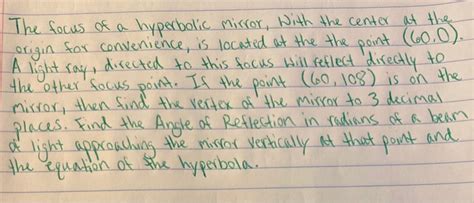 The focus of a hyperbolic mirror, With the center at the
origin for convenience, is located at the the point (60,0).
A light ray, directed to this focus will reflect directly to
the other focus point. If the point (60, 108) is on the
mirror, then find the vertex of the mirror to 3 decimal
places. Find the Angle of Reflection in radians of a beam
of light approaching the mirror vertically at that point and
the equation of the hyperbola.